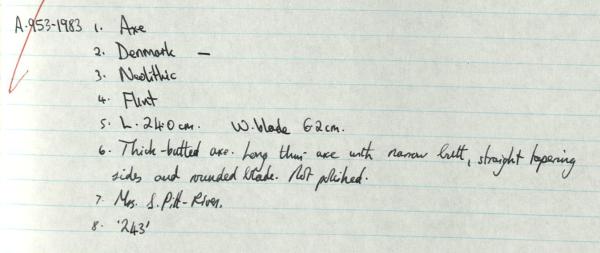 A.953-1983 1. Axe
2. Denmark —
3. Neolithic
4. Flint
5. L. 24.0 cm. W. blade 6.2 cm.
6. Thick-butted axe. Long thin axe with narrow butt, straight tapering
sides and rounded blade. Not polished.
7. Mrs. S. Pitt-Rivers.
8. '243'